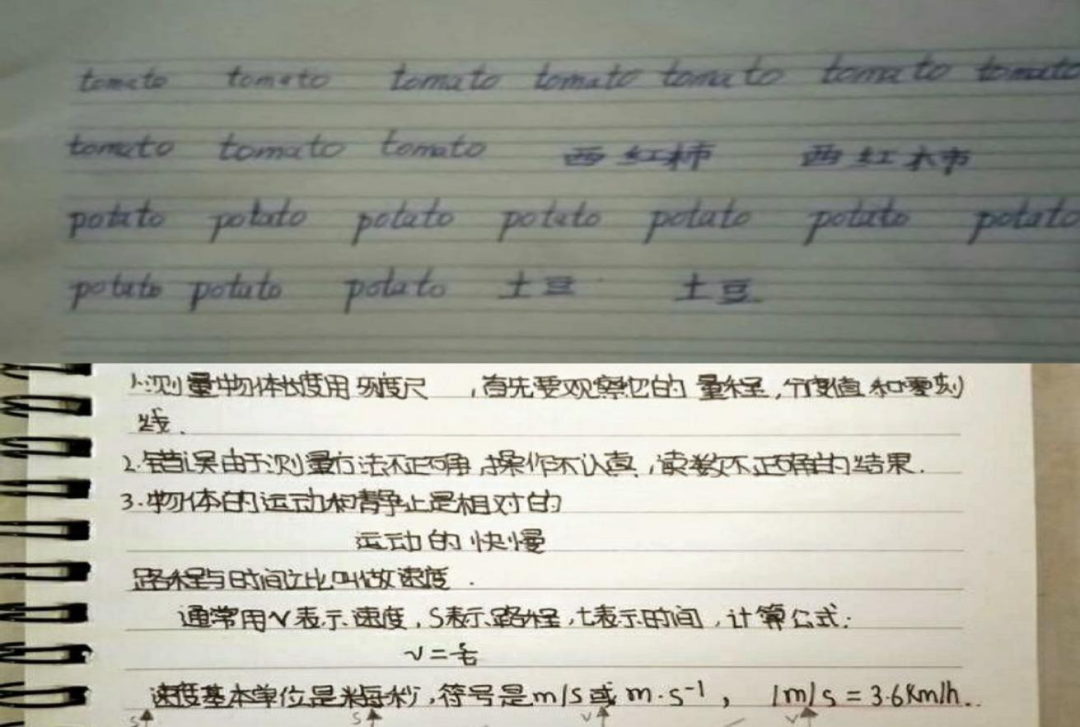 tomato tomato tomato tomato tomato tomato tomato
tomato tomato tomato 西红柿 西红柿
potato potato potato potato potato potato potato
potato potato potato 土豆 土豆
1.测量物体长度用刻度尺,首先要观察它的量程,分度值和零刻
线.
2.错误由于测量方法不正确,操作不认真,读数不正确的结果.
3.物体的运动和静止是相对的
运动的快慢
路程与时间之比叫做速度.
通常用V表示速度,S表示路程,t表示时间,计算公式:
v=s/t
速度基本单位是米每秒,符号是m/s或m·s⁻¹, 1m/s=3.6Km/h..
S↑ S↑ V↑ V↑